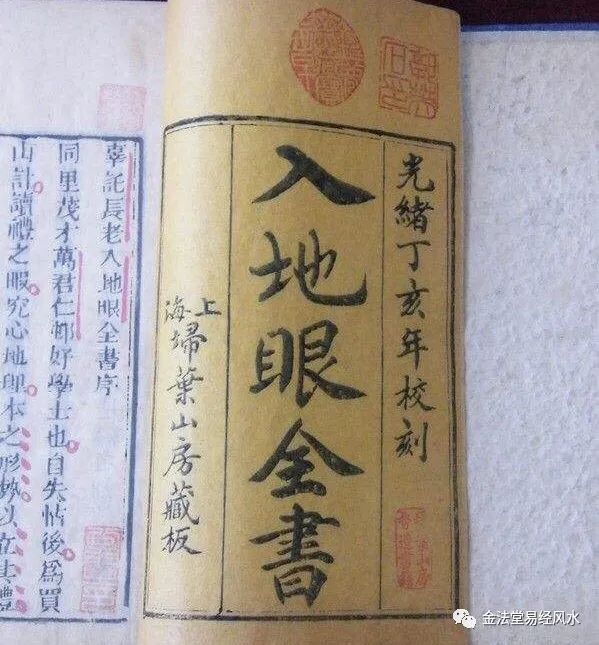 光緒丁亥年校刻
入地眼全書
上海埽葉山房藏板
辜託長老入地眼全書序
同里茂才萬君仁邨好學士也自失怙後爲買
山計讀禮之暇究心地理本之形勢以立其體
金法堂易经风水